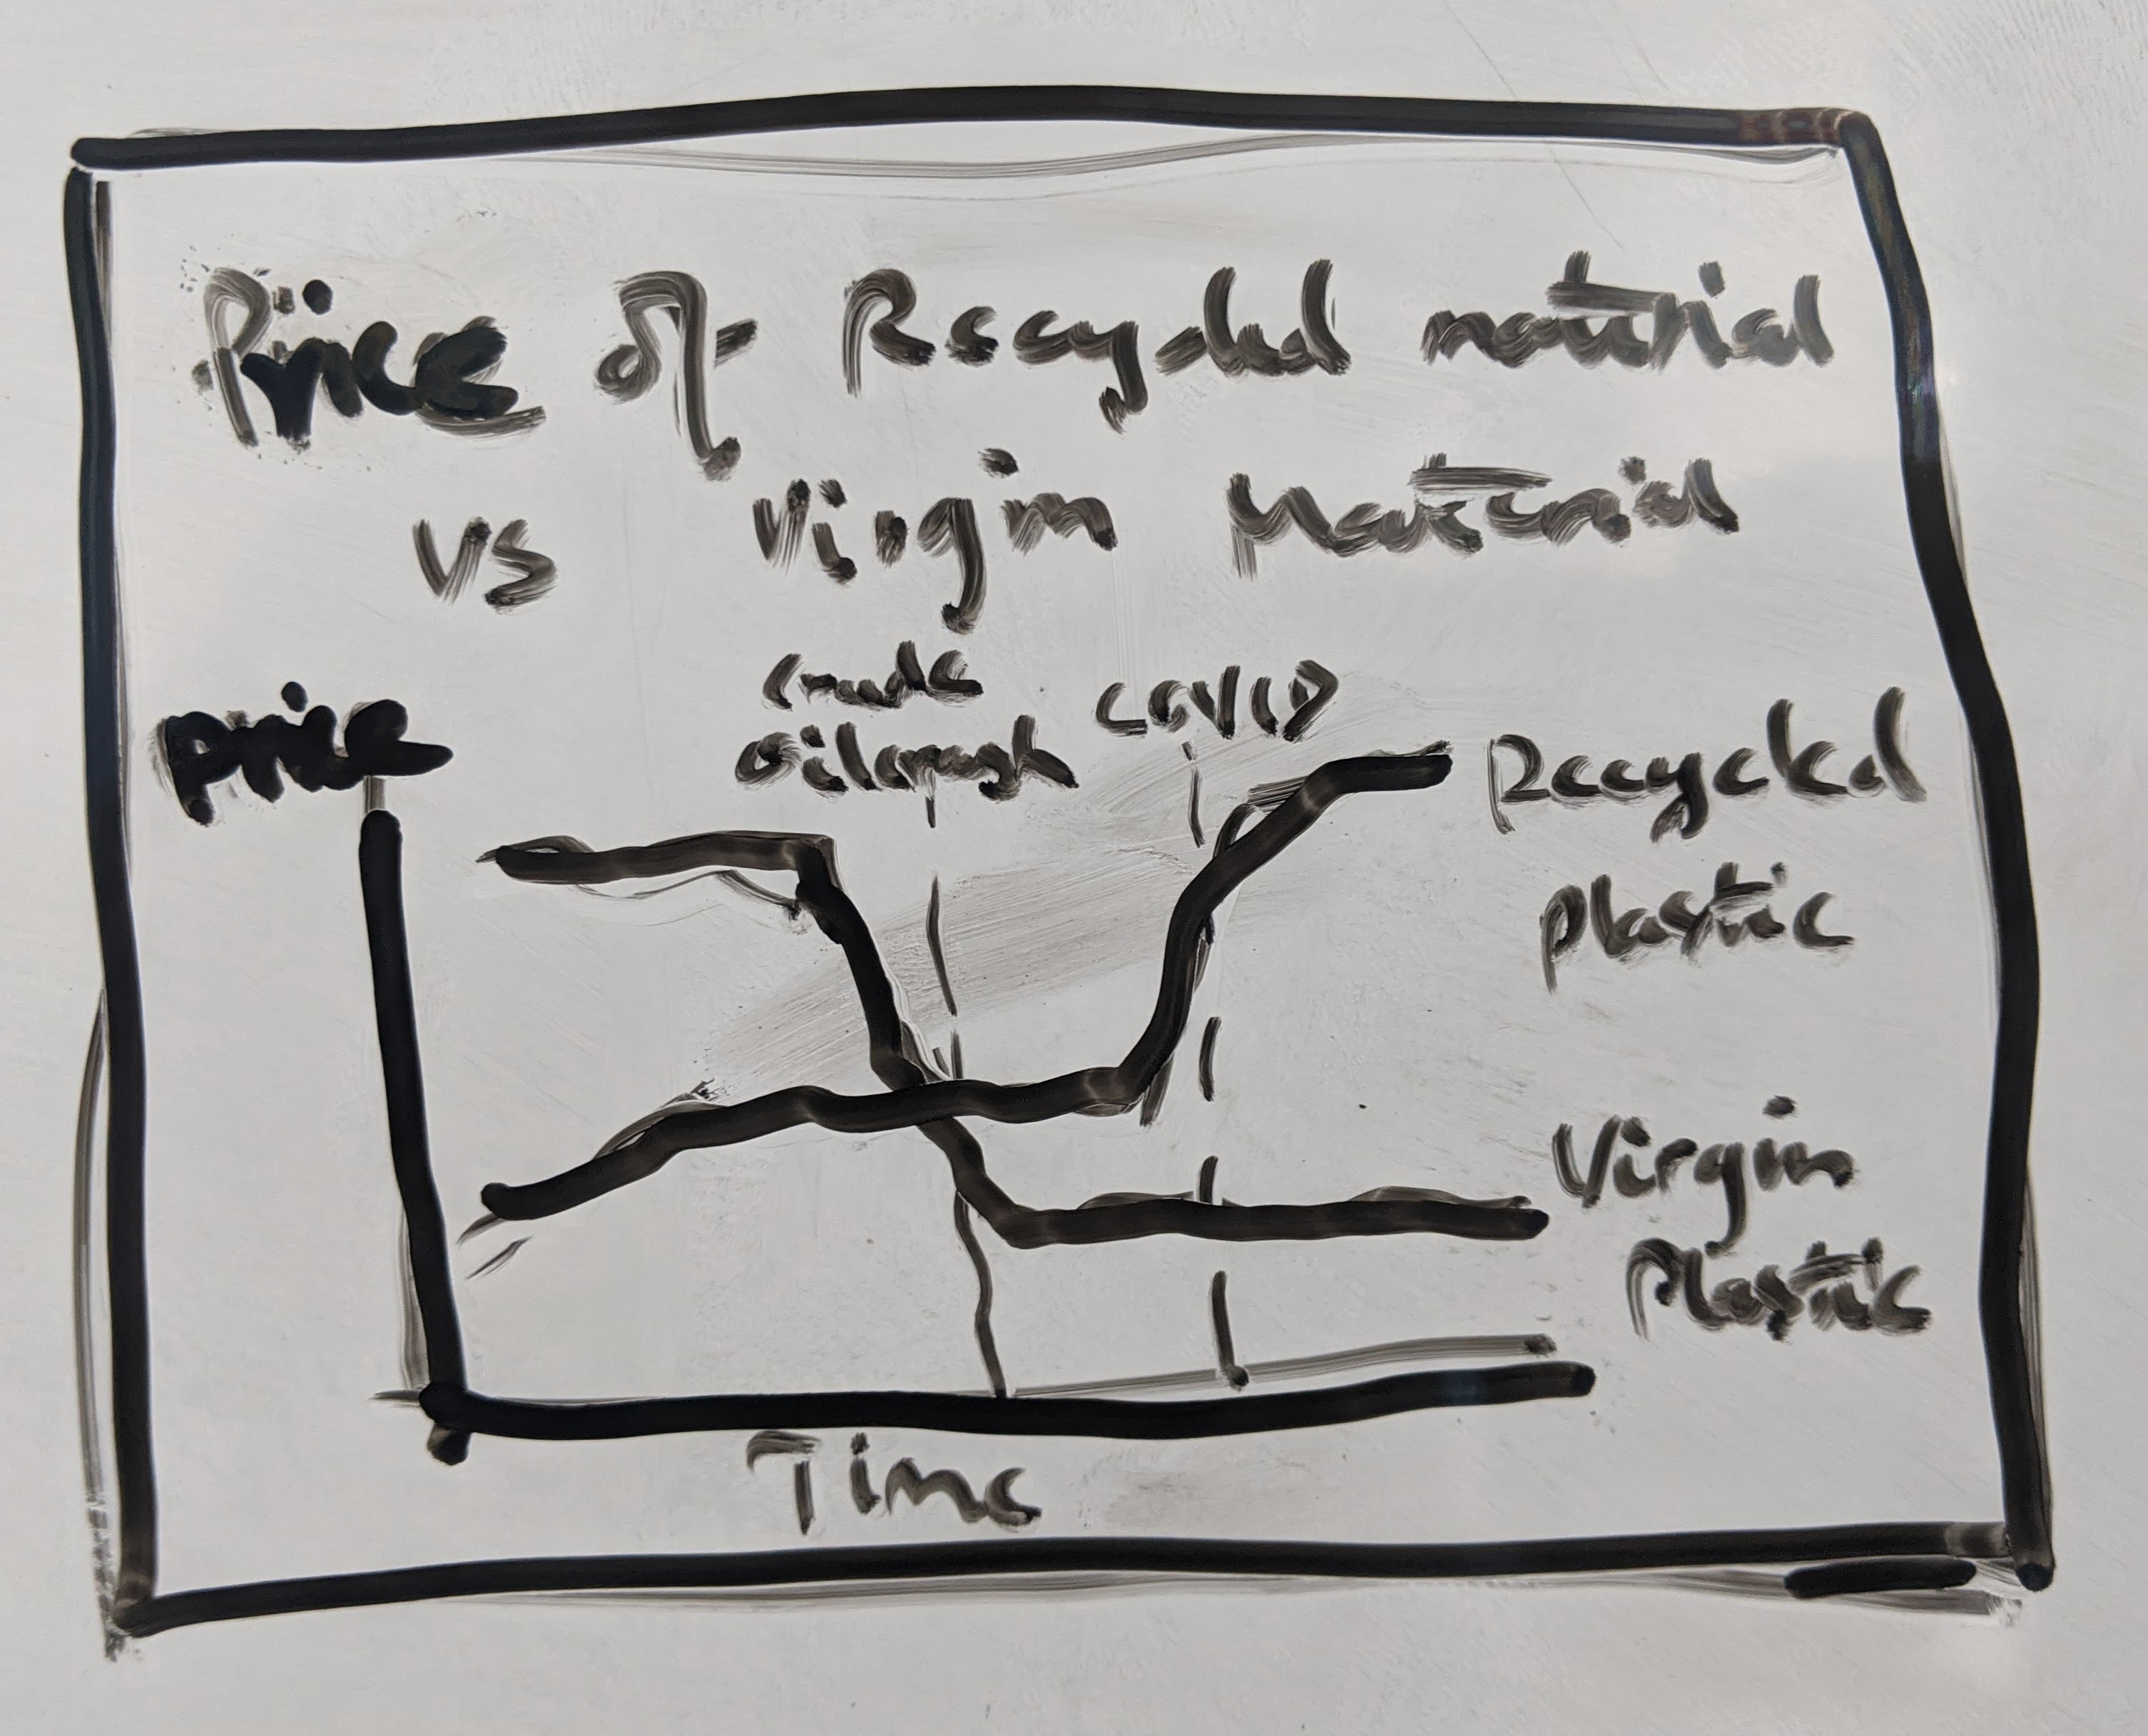 Price of Recycled material
vs Virgin Material
Price
Crude
Oil crash
COVID
Recycled
plastic
Virgin
Plastic
Time